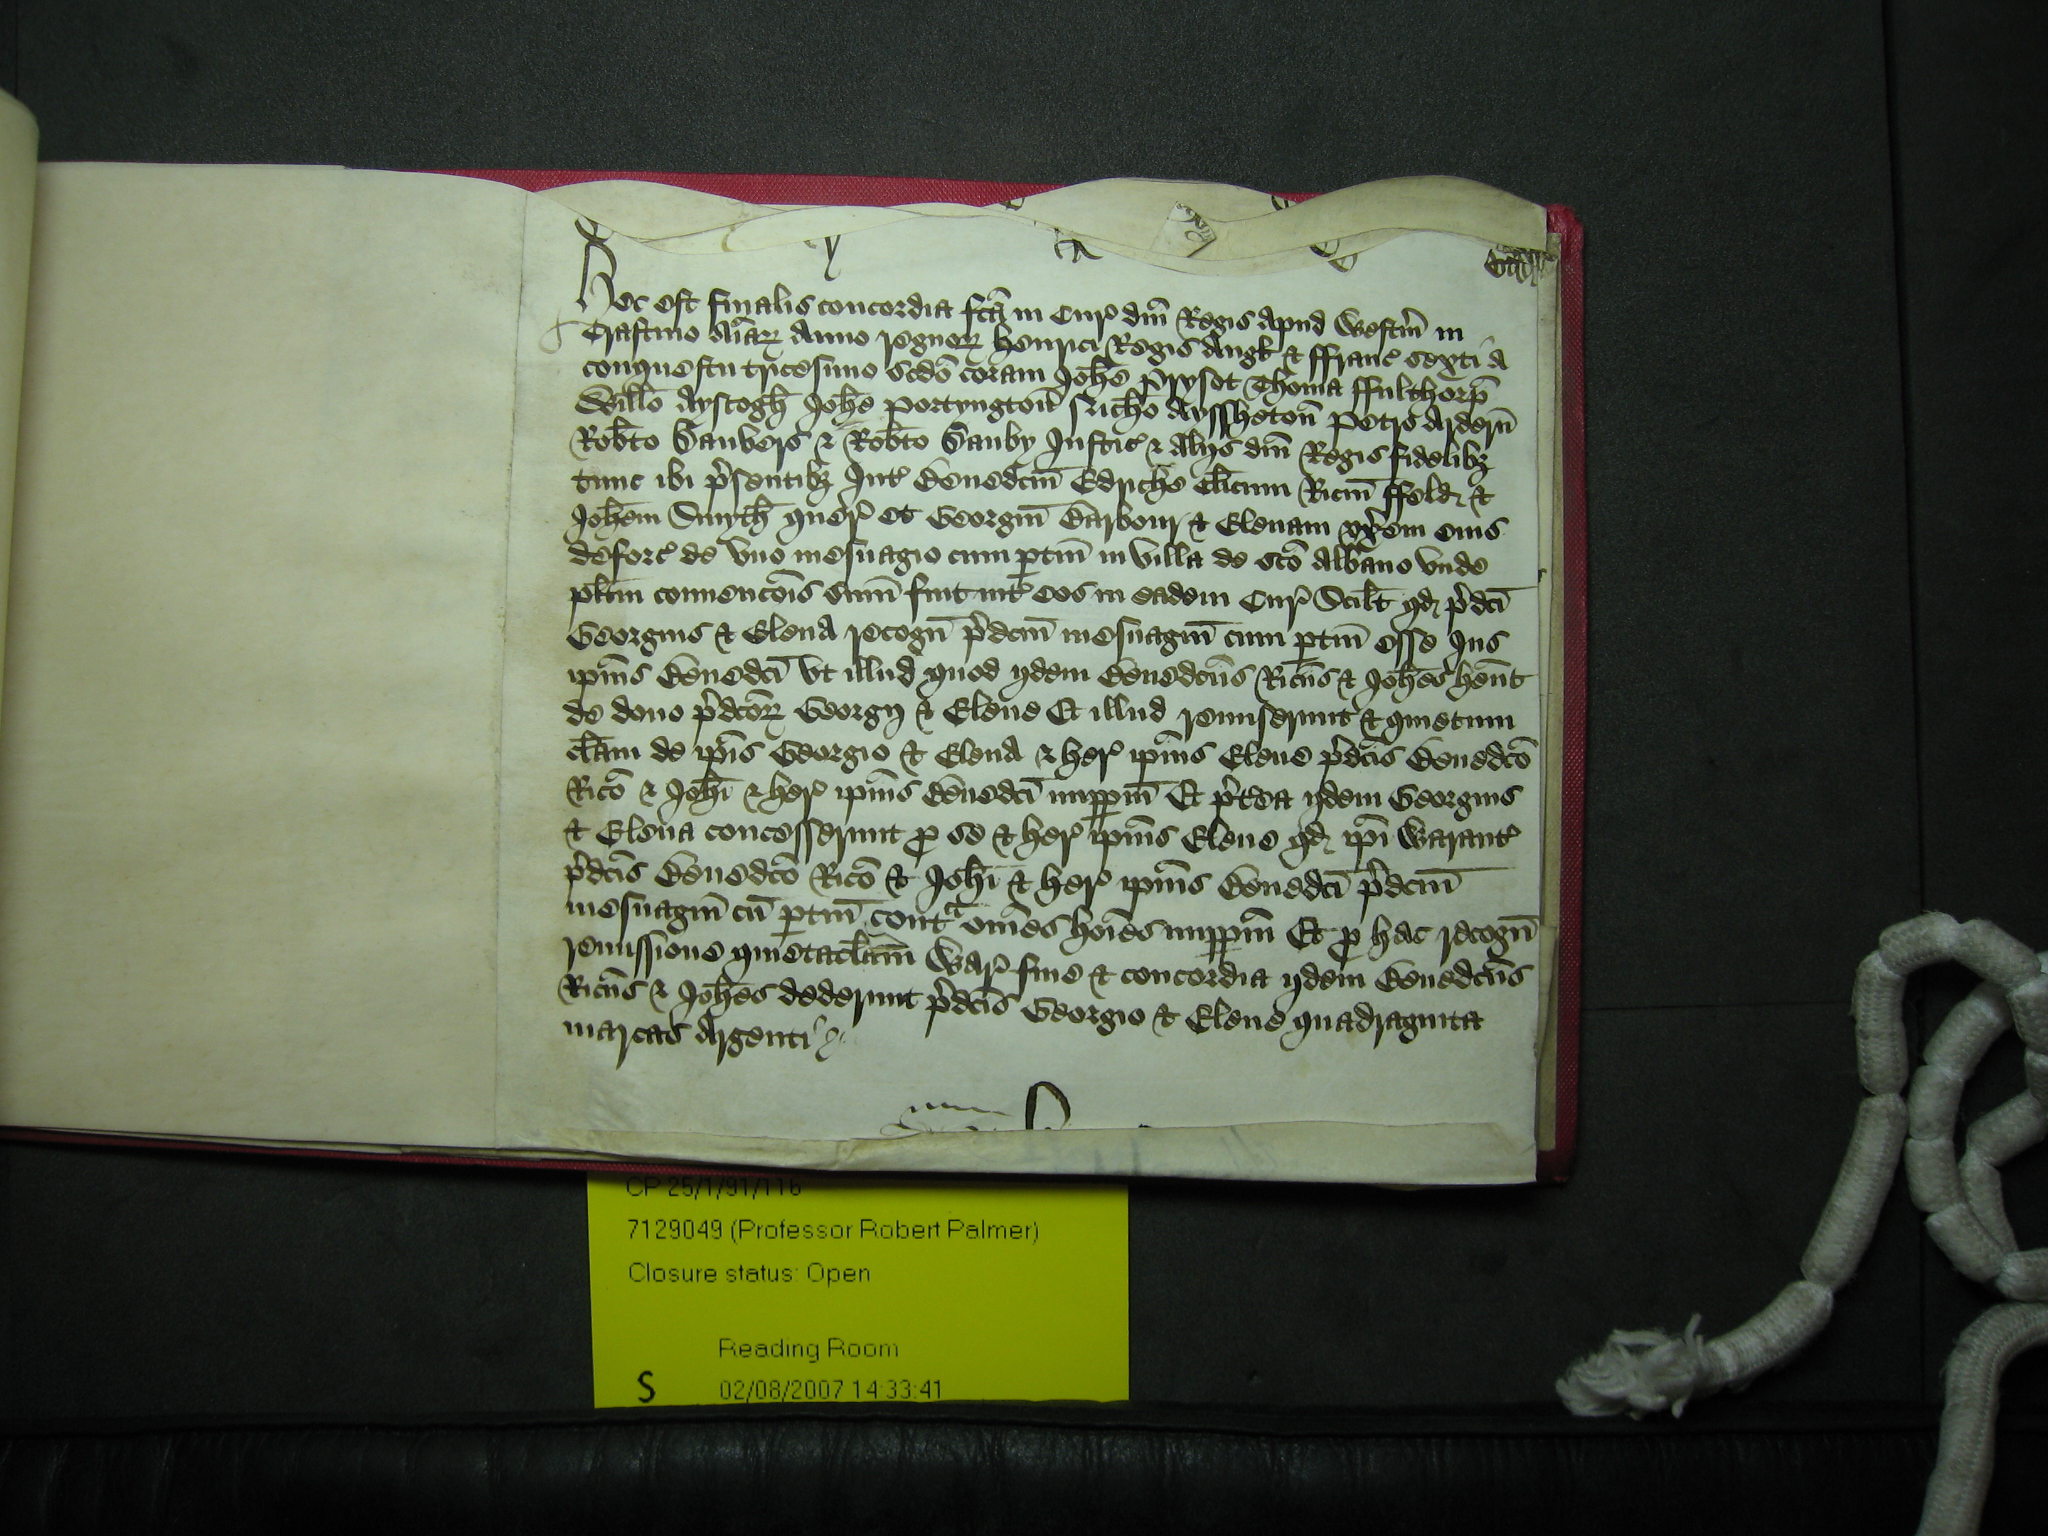 Hec est finalis concordia fc̄a in Cur̉ dn̄i Regis apud Westm̄ in
Crastino Ani̅aꝝ Anno regnoꝝ Henrici Regis Angł & ffranc̉ sexti a
conquestu tricesimo scdo̅ coram Joħe Prysot Thoma ffulthorp̄
Willo̅ Ayscogħ Joħe Portyngton̄ Nicħo Ayssheton̄ Petro Ardern̄
Rob̄to Danvers & Rob̄to Danby Justic̉ & alijs dn̄i Regis fidelibꝫ
tunc ibi p̉sentibꝫ Int̉ Benedc̄m Edriche cl̄icum Ric̄m ffeld &
Joħem Smytħ quer̉ et Georgiu̅ Barbour & Elenam vx̉em eius
deforc̉ de vno mesuagio cum ptin̄ in villa de sc̄o Albano vnde
pl̄itm conuenco̅is sum̄ fuit int̉ eos in eadem Cur̉ Scilt̄ qd p̉dc̄i
Georgius & Elena recogn̄ p̉dc̄m mesuagiu̅ cum ptin̄ esse Jus
ip̄ius Benedc̄i vt illud quod ijdem Benedc̄us Ric̄us & Joħes hen̄t
de dono p̉dc̄oꝝ Georgij & Elene Et illud remiserunt & quietum
cl̄am̉ de ip̄is Georgio & Elena & her̉ ip̄ius Elene p̉dc̄is Benedc̄o
Ric̄o & Joħi & her̉ ip̄ius Benedc̄i imppm̄ Et p̉t̉ea ijdem Georgius
& Elena concesserunt p̱ se & her̉ ip̄ius Elene qd ip̄i Warant̉
p̉dc̄is Benedc̄o Ric̄o & Joħi & her̉ ip̄ius Benedc̄i p̉dc̄m
mesuagiu̅ cu̅ ptin̄ contᵃ om̄es ho̅ies imppm̄ Et p̱ hac recogn̄
remissione quietacl̄am̄ War̉ fine & concordia ijdem Benedc̄us
Ric̄us & Joħes dederunt p̉dc̄is Georgio & Elene quadraginta
marcas argenti
CP 25/1/91/116
7129049 (Professor Robert Palmer)
Closure status: Open
Reading Room
S 02/08/2007 14:33:41